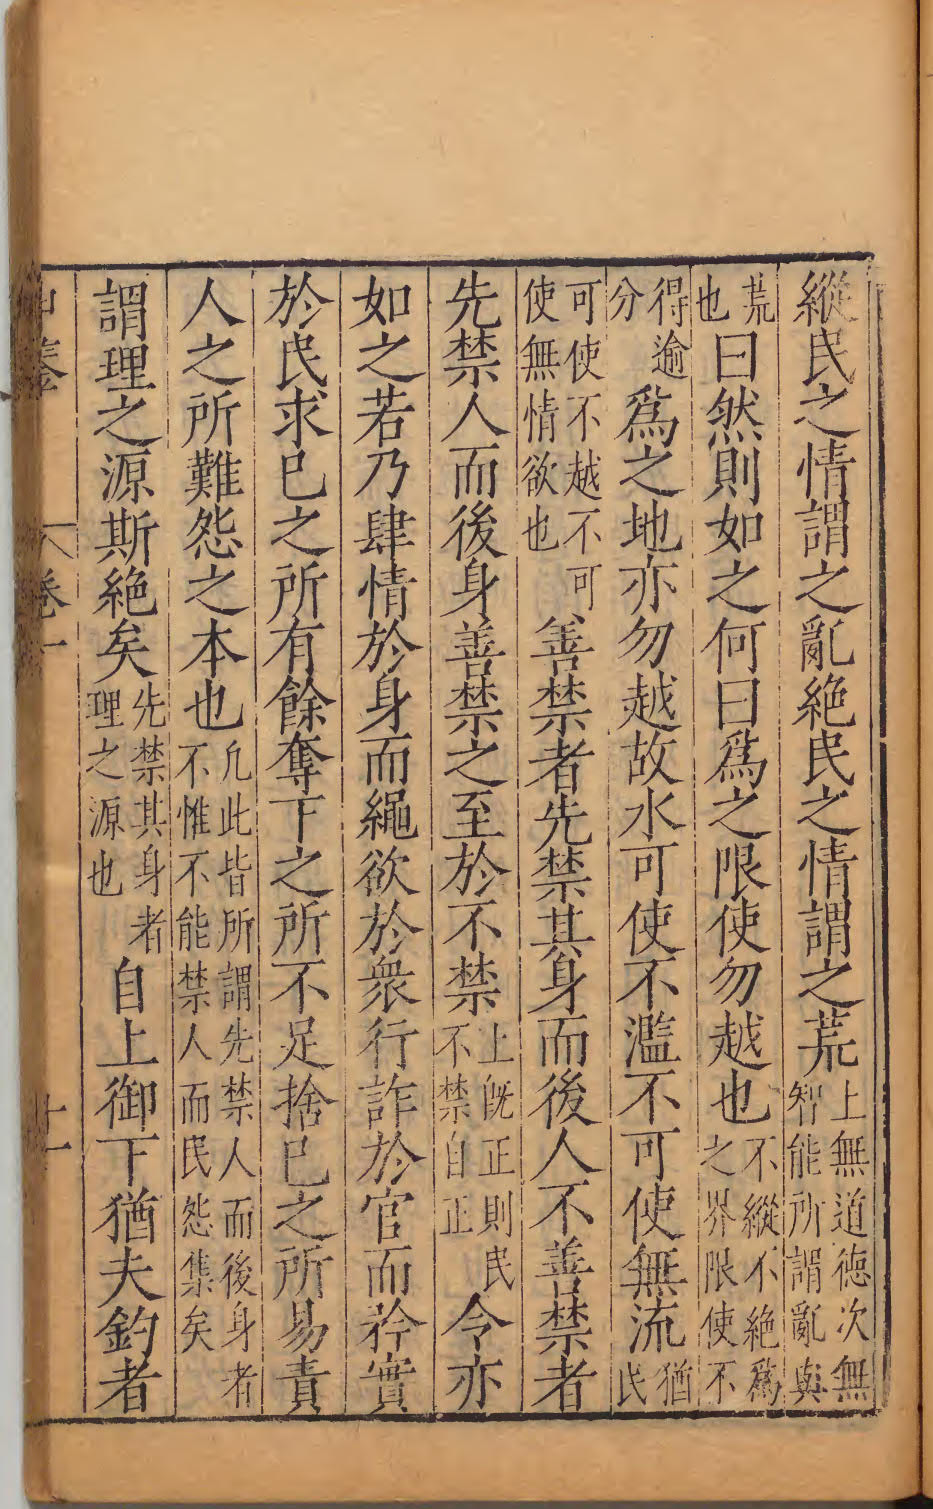 縱民之情謂之亂絕民之情謂之荒上無道德次無智能所謂亂與
荒也曰然則如之何曰爲之限使勿越也不縱不絕爲之界限使不
得逾分爲之地亦勿越故水可使不濫不可使無流猶民
可使不越不可使無情欲也善禁者先禁其身而後人不善禁者
先禁人而後身善禁之至於不禁上旣正則民不禁自正令亦
如之若乃肆情於身而繩欲於衆行詐於官而矜實
於民求已之所有餘奪下之所不足捨已之所易責
人之所難怨之本也凡此皆所謂先禁人而後身者不惟不能禁人而民怨集矣
謂理之源斯絕矣先禁其身者理之源也自上御下猶夫釣者
卷一
十一